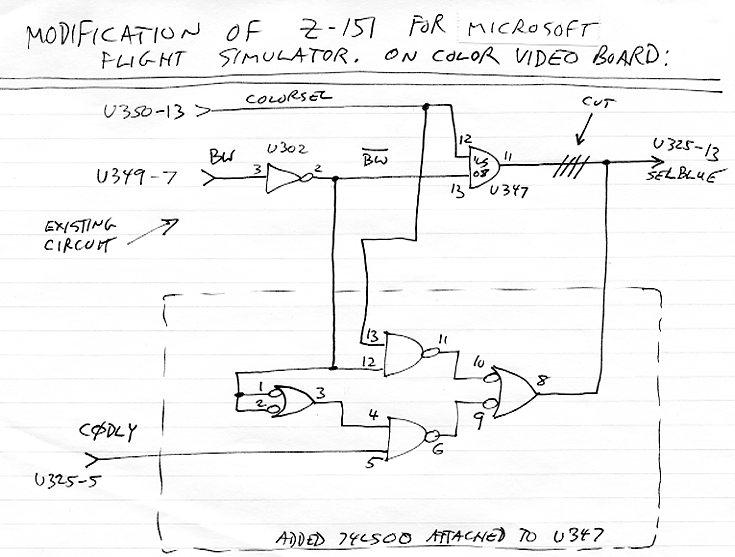 MODIFICATION OF Z-151 FOR MICROSOFT
FLIGHT SIMULATOR. ON COLOR VIDEO BOARD:
U350-13
COLORSEL
CUT
BW
U302
BW
12
LS
08
11
U325-13
SELBLUE
U349-7
3
2
13
U347
EXISTING
CIRCUIT
13
11
12
10
8
1
2
3
4
9
6
CØDLY
5
U325-5
ADDED 74LS00 ATTACHED TO U347